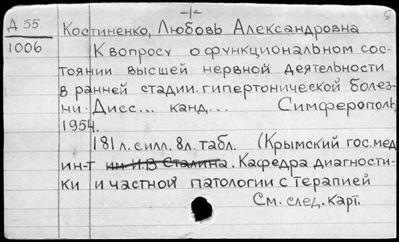 Д 55
1006
Костиненко, Любовь Александровна
К вопросу о функциональном сос-
тоянии высшей нервной деятельности
в ранней стадии гипертонической болез-
ни. Дисс... канд... Симферополь,
1954.
181 л. с илл. 8л. табл. (Крымский гос. мед
ин-т им. И.В Сталина. Кафедра диагности-
ки и частной патологии с терапией
См. след. карт.